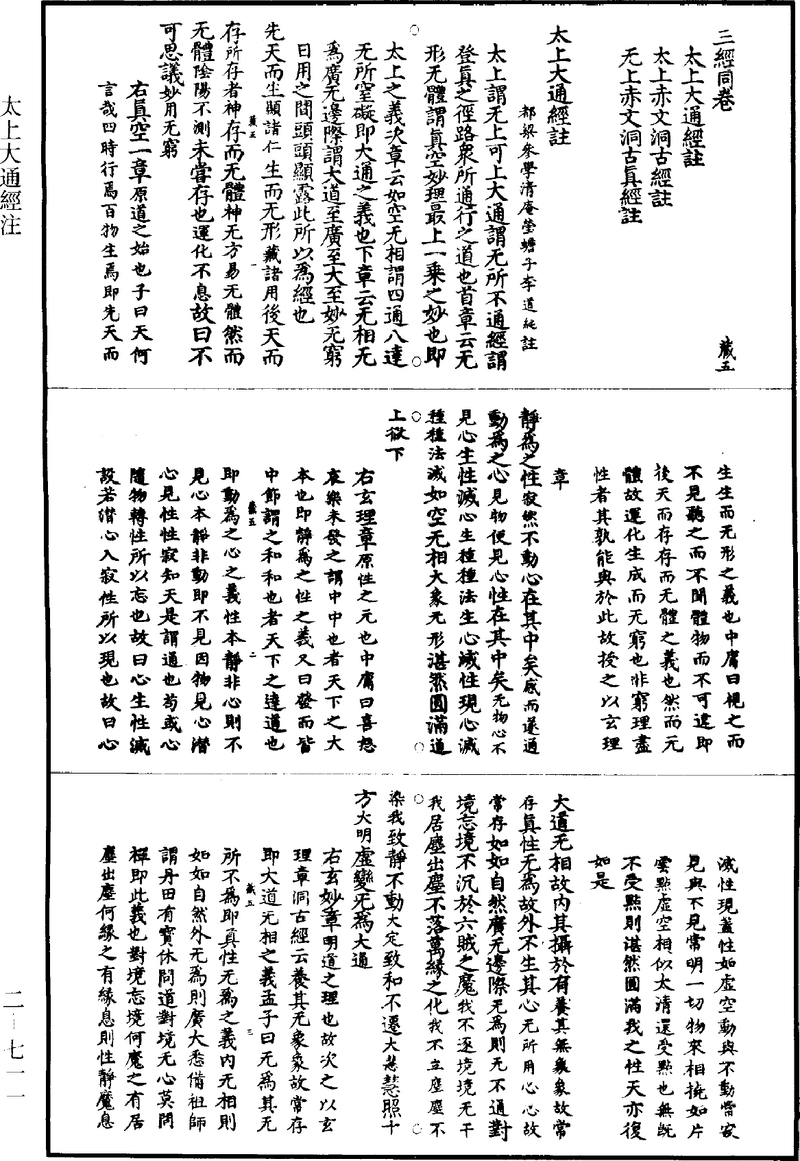 三經同卷　藏五
太上大通經註
太上赤文洞古經註
无上赤文洞古真經註
太上大通經註
都梁參學清庵瑩蟾子李道純註
太上謂无上可上大通謂无所不通經謂
登真之徑路衆所通行之道也首章云无
形无體謂真空妙理最上一乘之妙也即
太上之義次章云如空无相謂四通八達
无所窒礙即大通之義也下章云无相无
爲廣无邊際謂大道至廣至大至妙无窮
日用之間頭頭顯露此所以爲經也
先天而生顯諸仁生而无形藏諸用後天而
存所存者神存而无體神无方易无體然而
无體陰陽不測未嘗存也運化不息故曰不
可思議妙用无窮
右真空一章原道之始也子曰天何
言哉四時行焉百物生焉即先天而
生生而无形之義也中庸曰視之而
不見聽之而不聞體物而不可遺即
後天而存存而无體之義也然而无
體故運化生成而无窮也非窮理盡
性者其孰能與於此故授之以玄理
章
靜爲之性寂然不動心在其中矣感而遂通
動爲之心見物便見心性在其中矣无物心不
見心生性滅心生種種法生心滅性現心滅
種種法滅如空无相大象无形湛然圓滿道
上徹下
右玄理章原性之元也中庸曰喜怒
哀樂未發之謂中中也者天下之大
本也即靜爲之性之義又曰發而皆
中節謂之和和也者天下之達道也
即動爲之心之義性本靜非心則不
見心本靜非動即不見因物見心潛
心見性性寂知天是謂通也苟或心
隨物轉性所以忘也故曰心生性滅
設若潛心入寂性所以現也故曰心
滅性現蓋性如虛空動與不動當寂
見與不見常明一切物來相撓如片
雲點虛空相似太清還受點也無既
不受點則湛然圓滿我之性天亦復
如是
大道无相故内其攝於有養其無象象故常
存真性无爲故外不生其心无所用心心故
常存如如自然廣无邊際无爲則无不通對
境忘境不沉於六賊之魔我不逐境境无干
我居塵出塵不落萬緣之化我不立塵塵不
染我致靜不動大定致和不遷大慧慧照十
方大明虛變无爲大通
右玄妙章明道之理也故次之以玄
理章洞古經云養其无象象故常存
即大道无相之義孟子曰无爲其无
所不爲即真性无爲之義内无相則
如如自然外无爲則廣大悉備祖師
謂丹田有寶休問道對境无心莫問
禪即此義也對境忘境何魔之有居
塵出塵何緣之有緣息則性靜魔息
太上大通經注
二—七一一